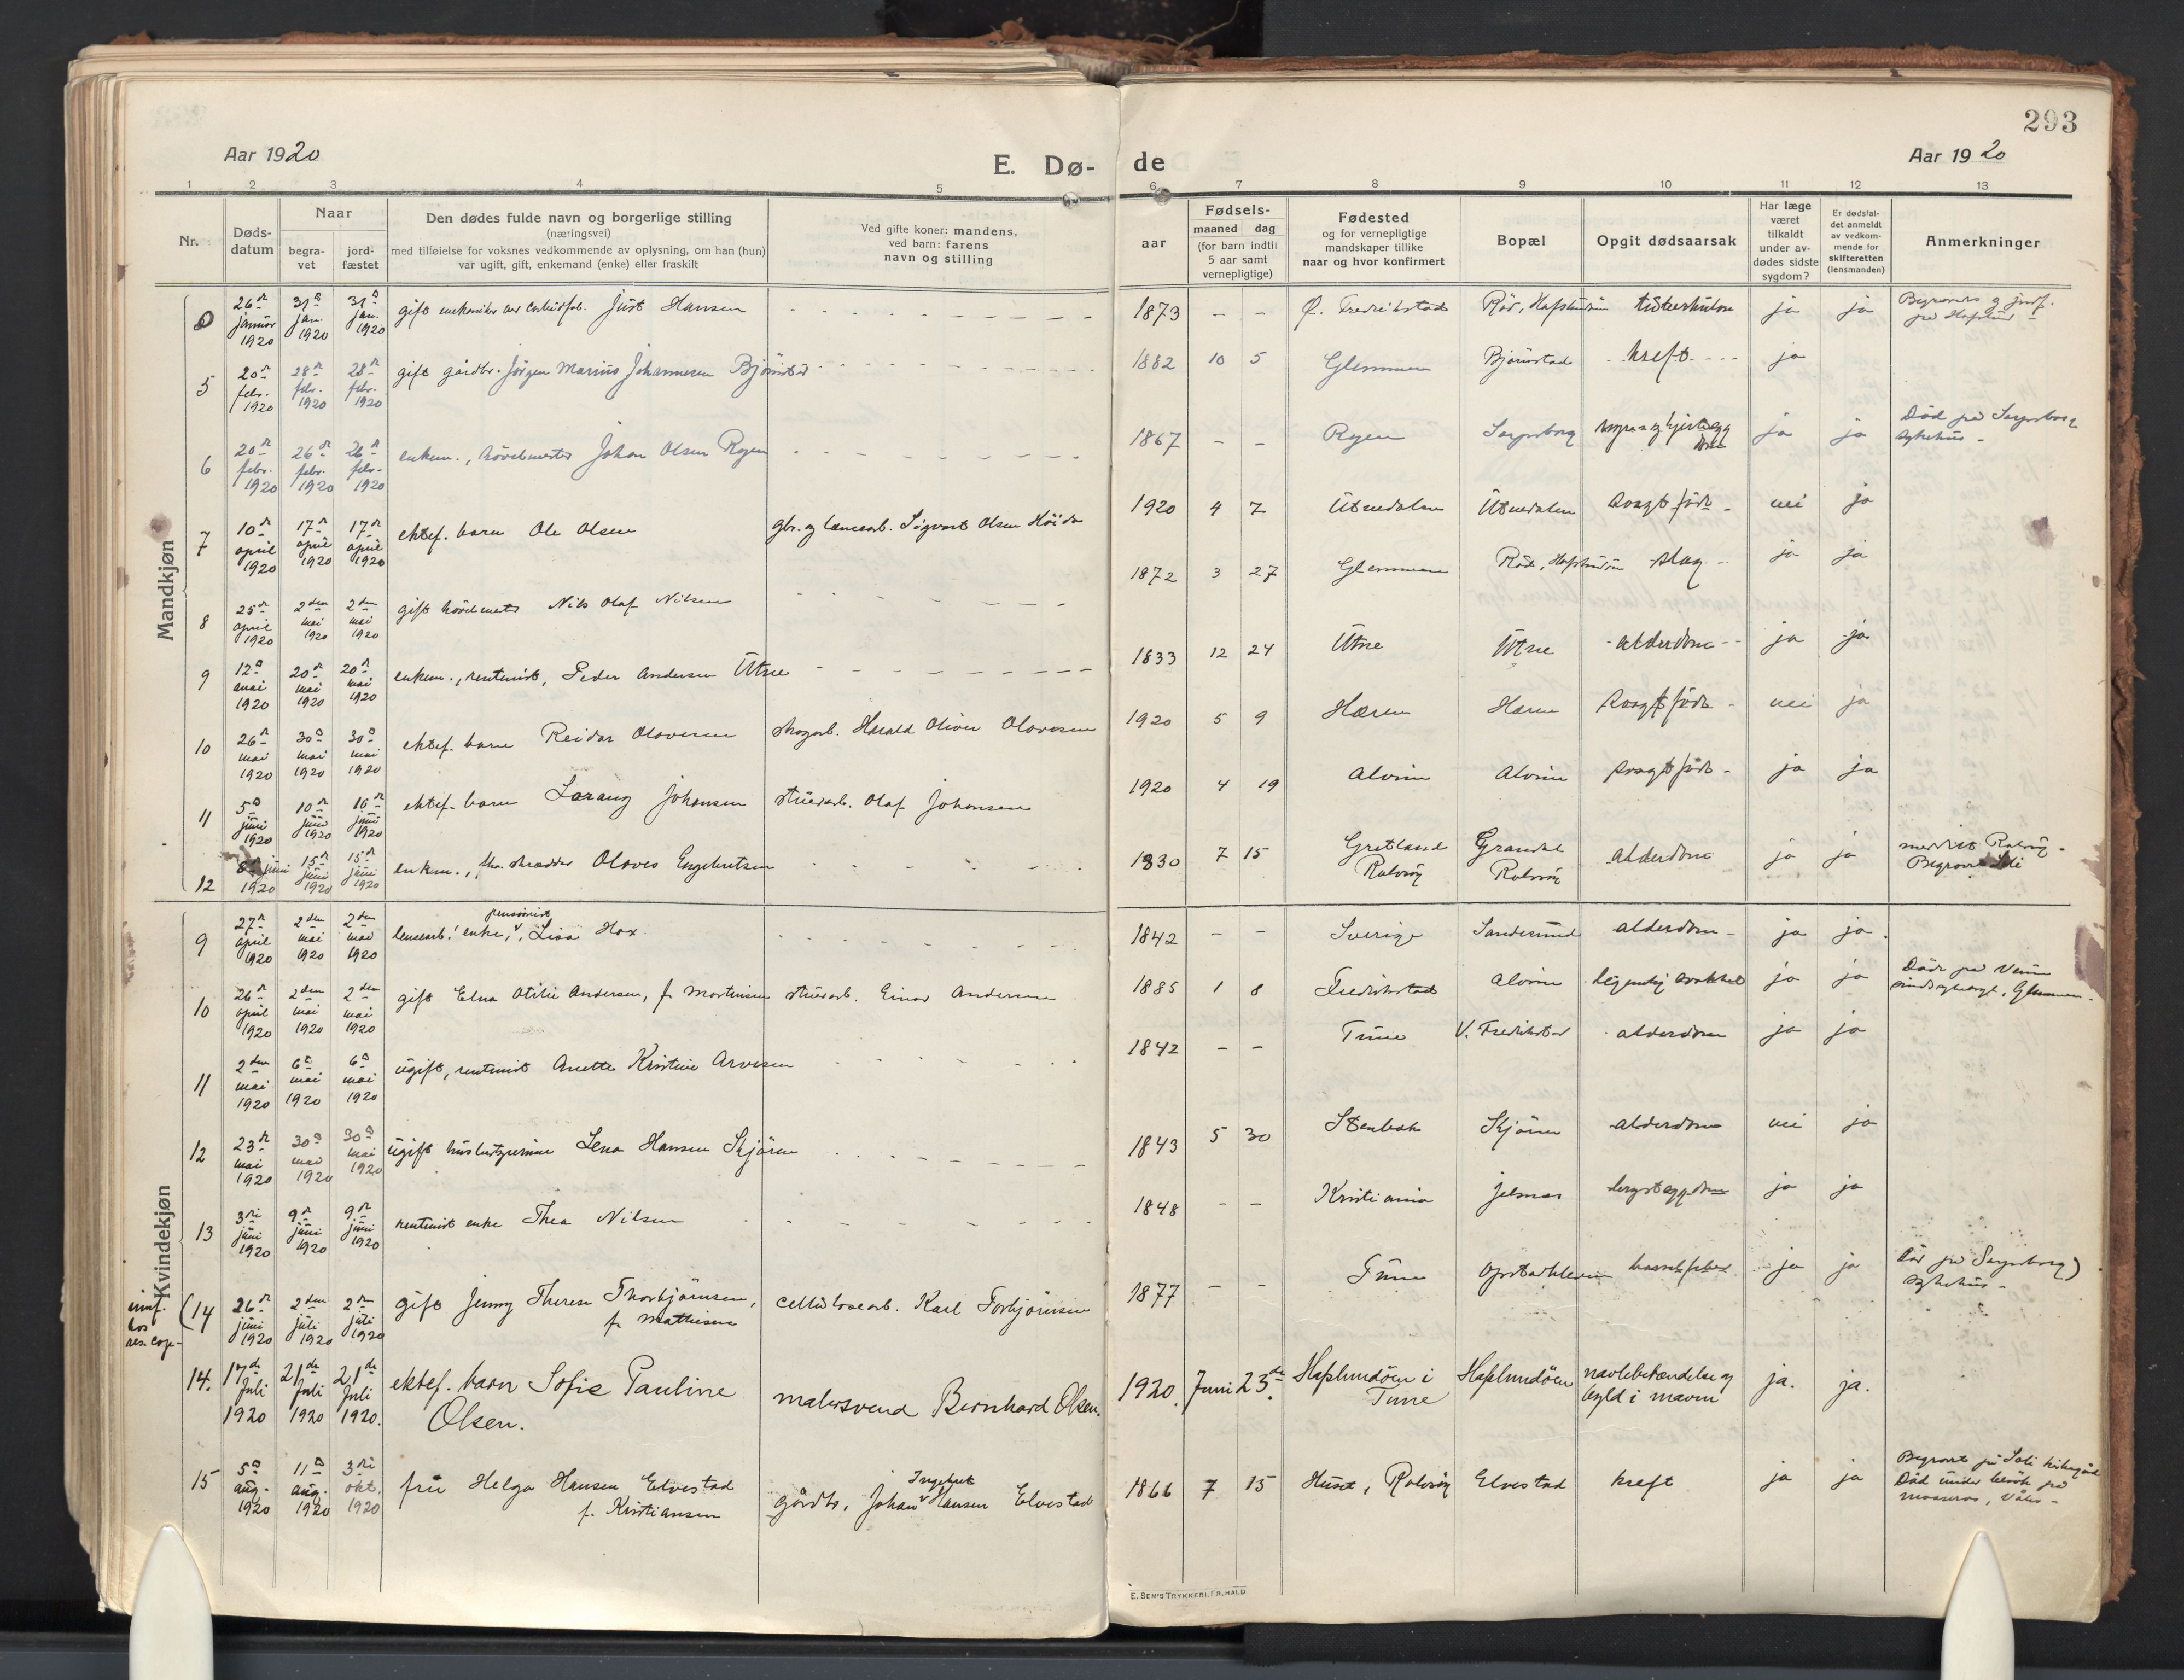 293
Aar 1920
E. Dø-
de
Aar 1920
1 2 3 4 5 6 7 8 9 10 11 12 13
Nr.
Døds-
datum
Naar
begra-
vet
jord-
fæstet
Den dødes fulde navn og borgerlige stilling
(næringsvei)
med tilføielse for voksnes vedkommende av oplysning, om han (hun)
var ugift, gift, enkemand (enke) eller fraskilt
Ved gifte koner: mandens,
ved barn: farens
navn og stilling
aar
Fødsels-
maaned dag
(for barn indtil
5 aar samt
vernepligtige)
Fødested
og for vernepligtige
mandskaper tillike
naar og hvor konfirmert
Bopæl
Opgit dødsaarsak
Har læge
været
tilkaldt
under av-
dødes sidste
sygdom?
Er dødsfal-
det anmeldt
av vedkom-
mende for
skifteretten
(lensmanden)
Anmerkninger
Mandkjøn
26de januar 1920 31te jan. 1920 31te jan. 1920 gift Just Hansen 1873 - - Ø. Fredrikstad Röd, Hafslundsöen tuberkulose ja ja
5 20de febr. 1920 28de febr. 1920 28de febr. 1920 gift gårdbr. Jörgen Marius Johannesen Björnstad 1882 10 5 Glemmen Björnstad kreft ja
6 20de febr. 1920 26de febr. 1920 26de febr. 1920 enkem., hövelmester Johan Olsen Rygen 1867 - - Rygen Sarpsborg ja ja Död på Sarpsborg sykehus -
7 10de april 1920 17de april 1920 17de april 1920 ektef. barn Ole Olsen gbr. og lensearb. Sigvart Olsen 1920 4 7 Utnedalen Utnedalen svagt födt - nei ja
8 25de april 1920 2den mai 1920 2den mai 1920 gift hövelmester Nils Olaf Nilsen 1872 3 27 Glemmen Röd, Hafslundsöen slag - ja ja
9 12te mai 1920 20de mai 1920 20de mai 1920 enkem., rentenist, Peder Andersen Utne 1833 12 24 Utne Utne - alderdom - ja ja
10 26de mai 1920 30te mai 1920 30te mai 1920 ektef. barn Reidar Olavesen skogarb. Harald Oliver Olavesen 1920 5 9 Haren Haren svagt födt - nei ja
11 5te juni 1920 10de juni 1920 10de juni 1920 ektef. barn Johansen stuerarb. Olaf Johansen 1920 4 19 Alvim Alvim svagt födt - ja ja
12 8de juni 1920 15de juni 1920 15de juni 1920 enkem., fhv. skrædder Olaves Engebretsen 1830 7 15 Gretland Rolvsöy Grandal Rolvsöy alderdom ja ja meddelt Rolvsöy - Begravet Soli
Kvindekjøn
9 27de april 1920 2den mai 1920 2den mai 1920 lensearb. enke, pensionist, Lisa Hox 1842 - - Sverige Sandesund alderdom - ja ja.
10 26de april 1920 2den mai 1920 2den mai 1920 gift Elna Otilie Andersen, f. Martinsen stuerarb. Einar Andersen 1885 1 8 Fredrikstad Alvim ja ja Död på Veum sindssykeasyl, Glemmen -
11 2den mai 1920 6te mai 1920 6te mai 1920 ugift, rentenist Anette Kristine Arvesen 1842 - - Tune V. Fredrikstad alderdom ja ja
12 23de mai 1920 30te mai 1920 30te mai 1920 ugift husbestyrerinne Lena Hansen Skjören 1843 5 30 Stenbak Skjören alderdom nei ja
13 3die juni 1920 9de juni 1920 9de juni 1920 rentenist enke Thea Nilsen 1848 - - Kristiania Jelsnes ja ja
innf. hos res. cap. (14 26de juni 1920 2den juli 1920 2den juli 1920 gift Jenny Therese Thorbjörnsen, f. Mathisen cellulosearb. Karl Torbjörnsen 1877 - - Tune Opstadkleven barselfeber ja ja död på Sarpsborg sykehus - )
14. 17de Juli 1920 21de Juli 1920 21de Juli 1920. ektef. barn Sofie Pauline Olsen. malersvend Bernhard Olsen. 1920. Juni 23de. Hafslundöen i Tune Hafslundöen navlebetændelse og byld i maven ja. ja.
15 5te aug. 1920 11te aug. 1920 3die okt. 1920 fru Helga Hansen Elvestad f. Kristiansen gårdbr. Johan Ingebret Hansen Elvestad 1866 7 15 Huset, Rolvsöy Elvestad kreft ja ja Begravet på Soli kirkegård Död under besök på Mosseros, Våler -
E. SEM'S TRYKKERI, FR.HALD